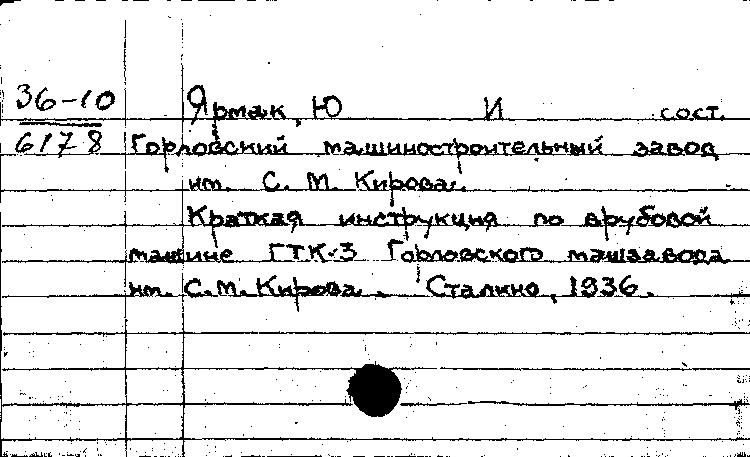 36-10
6178
Ярмак, Ю И сост.
Горловский машиностроительный завод
им. С. М. Кирова.
Краткая инструкция по врубовой
машине ГТК-3 Горловского машзавода
им. С.М. Кирова. Сталино, 1936.